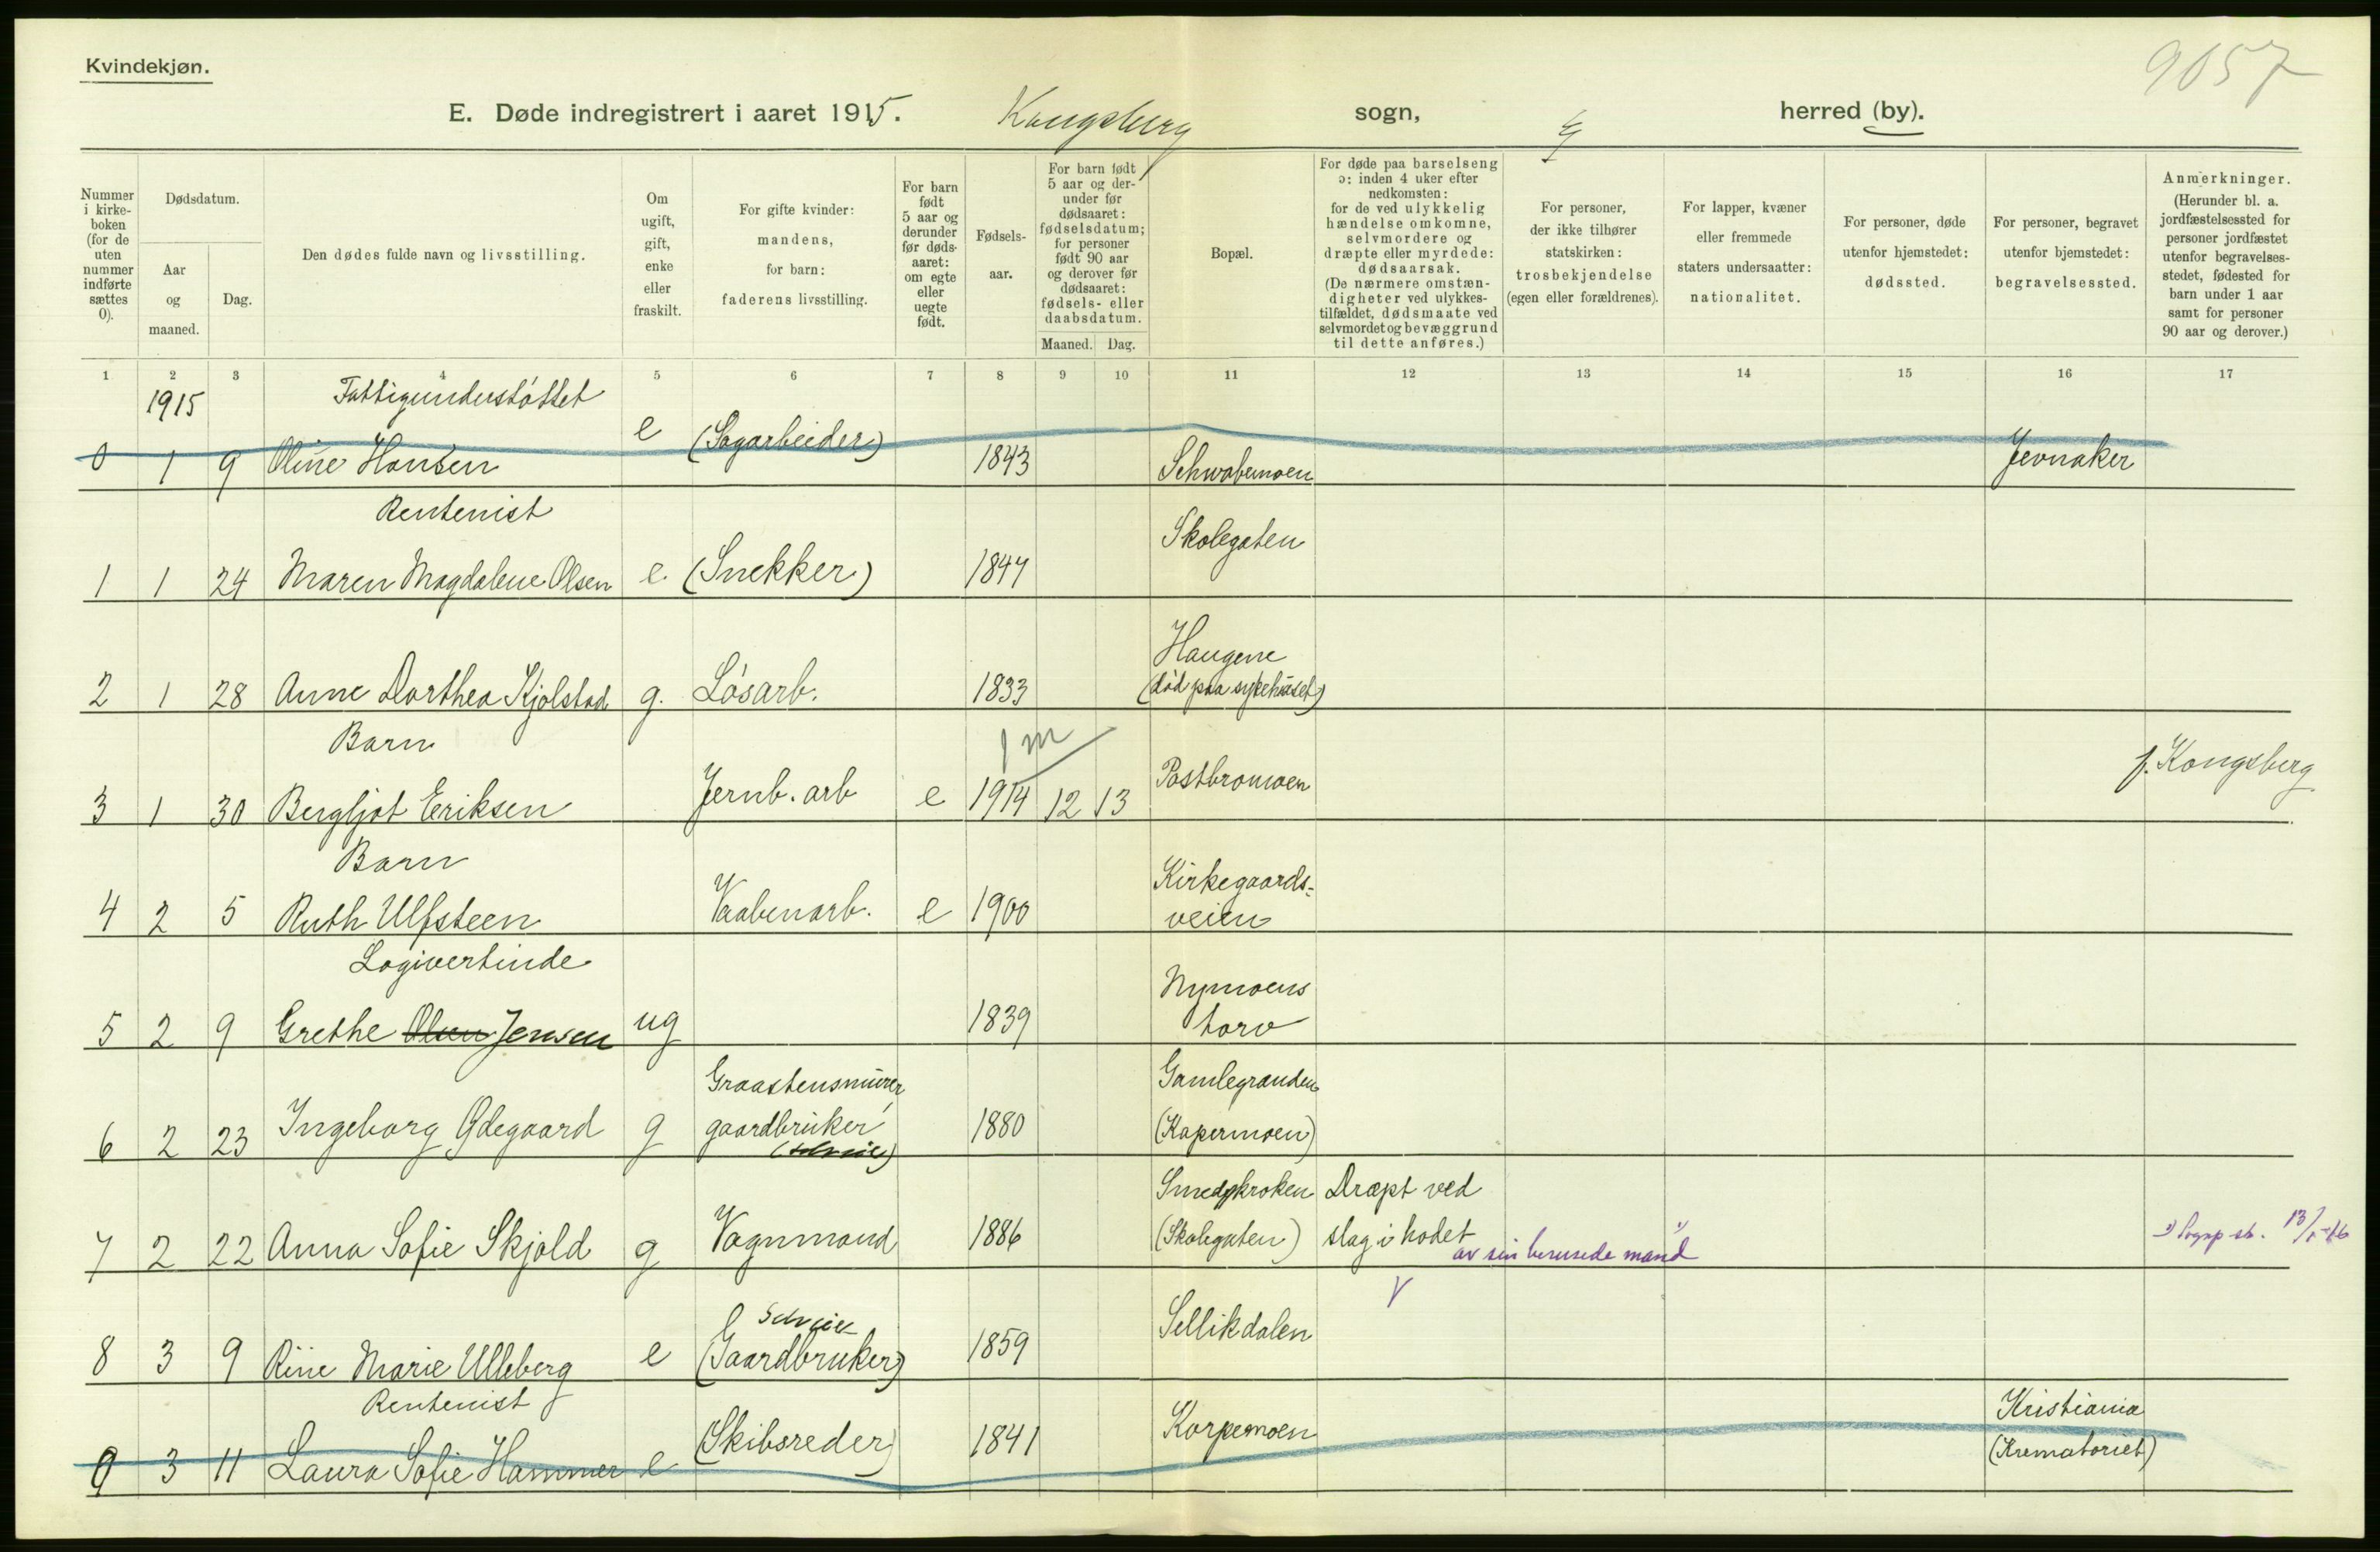 Kvindekjøn.
9657
E. Døde indregistrert i aaret 1915. Kongsberg sogn, herred (by).
Nummer i kirke-boken (for de uten nummer indførte sættes 0).
Dødsdatum.
Aar og maaned.
Dag.
Den dødes fulde navn og livsstilling.
Om ugift, gift, enke eller fraskilt.
For gifte kvinder: mandens, for barn: faderens livsstilling.
For barn født 5 aar og derunder før døds-aaret: om egte eller uegte født.
Fødsels-aar.
For barn født 5 aar og der-under før dødsaaret: fødselsdatum; for personer født 90 aar og derover før dødsaaret: fødsels- eller daabsdatum.
Maaned. Dag.
Bopæl.
For døde paa barselseng ɔ: inden 4 uker efter nedkomsten: for de ved ulykkelig hændelse omkomne, selvmordere og dræpte eller myrdede: dødsaarsak. (De nærmere omstæn-digheter ved ulykkes-tilfældet, dødsmaate ved selvmordet og bevæggrund til dette anføres.)
For personer, der ikke tilhører statskirken: trosbekjendelse (egen eller forældrenes).
For lapper, kvæner eller fremmede staters undersaatter: nationalitet.
For personer, døde utenfor hjemstedet: dødssted.
For personer, begravet utenfor hjemstedet: begravelsessted.
Anmerkninger. (Herunder bl. a. jordfæstelsessted for personer jordfæstet utenfor begravelses-stedet, fødested for barn under 1 aar samt for personer 90 aar og derover.)
1 2 3 4 5 6 7 8 9 10 11 12 13 14 15 16 17
1915 Fattigunderstøttet
0 1 9 Oline Hansen e (Sagarbeider) 1843 Schwabemoen Jevnaker
Rentenist
1 1 24 Maren Magdalene Olsen e. (Snekker) 1847 Skolegaten
2 1 28 Anne Dorthea Kjølstad g. Løsarb. 1833 Haugene
(død paa sykehuset)
Barn 1 m
3 1 30 Bergljot Eriksen Jernb. arb e 1914 12 13 Postbromoen f. Kongsberg
Barn
4 2 5 Ruth Ulfsteen Vaabenarb. e 1900 Kirkegaards-
veien
Logivertinde
5 2 9 Grethe Olsen Jensen ug 1839 Nymoens
torv
Graastensmurer Gamlegrauden
6 2 23 Ingeborg Ødegaard g gaardbruker 1880 (Kapermoen)
(Selveie)
Smedjekroken Dræpt ved
7 2 22 Anna Sofie Skjold g Vognmand 1886 (Skolegaten) slag i hodet
av sin berusede mand 1)
Selveier
8 3 9 Rine Marie Ulleberg e (Gaardbruker) 1859 Sellikdalen
Rentenist
0 3 11 Laura Sofie Hammer e (Skibsreder) 1841 Korpemoen Kristiania
(Krematoriet)